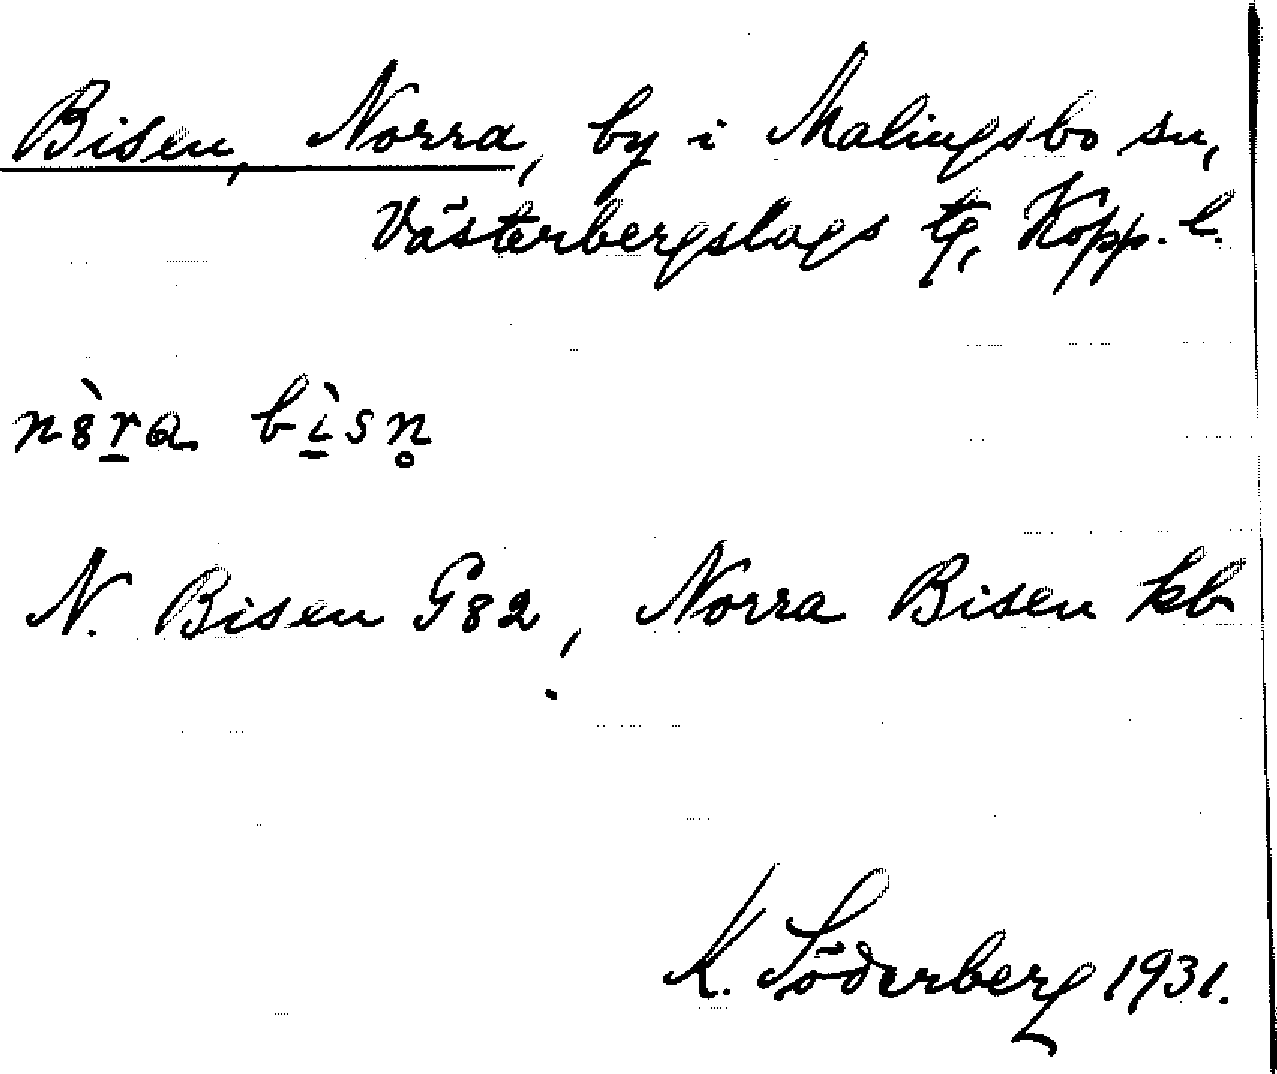 Bisen, Norra, by i Malingsbo sn,
Västerbergslags tg, Kopp. l.
n8̀r̲a bì̲sn̥
N. Bisen G82, Norra Bisen kb
K. Söderberg 1931.